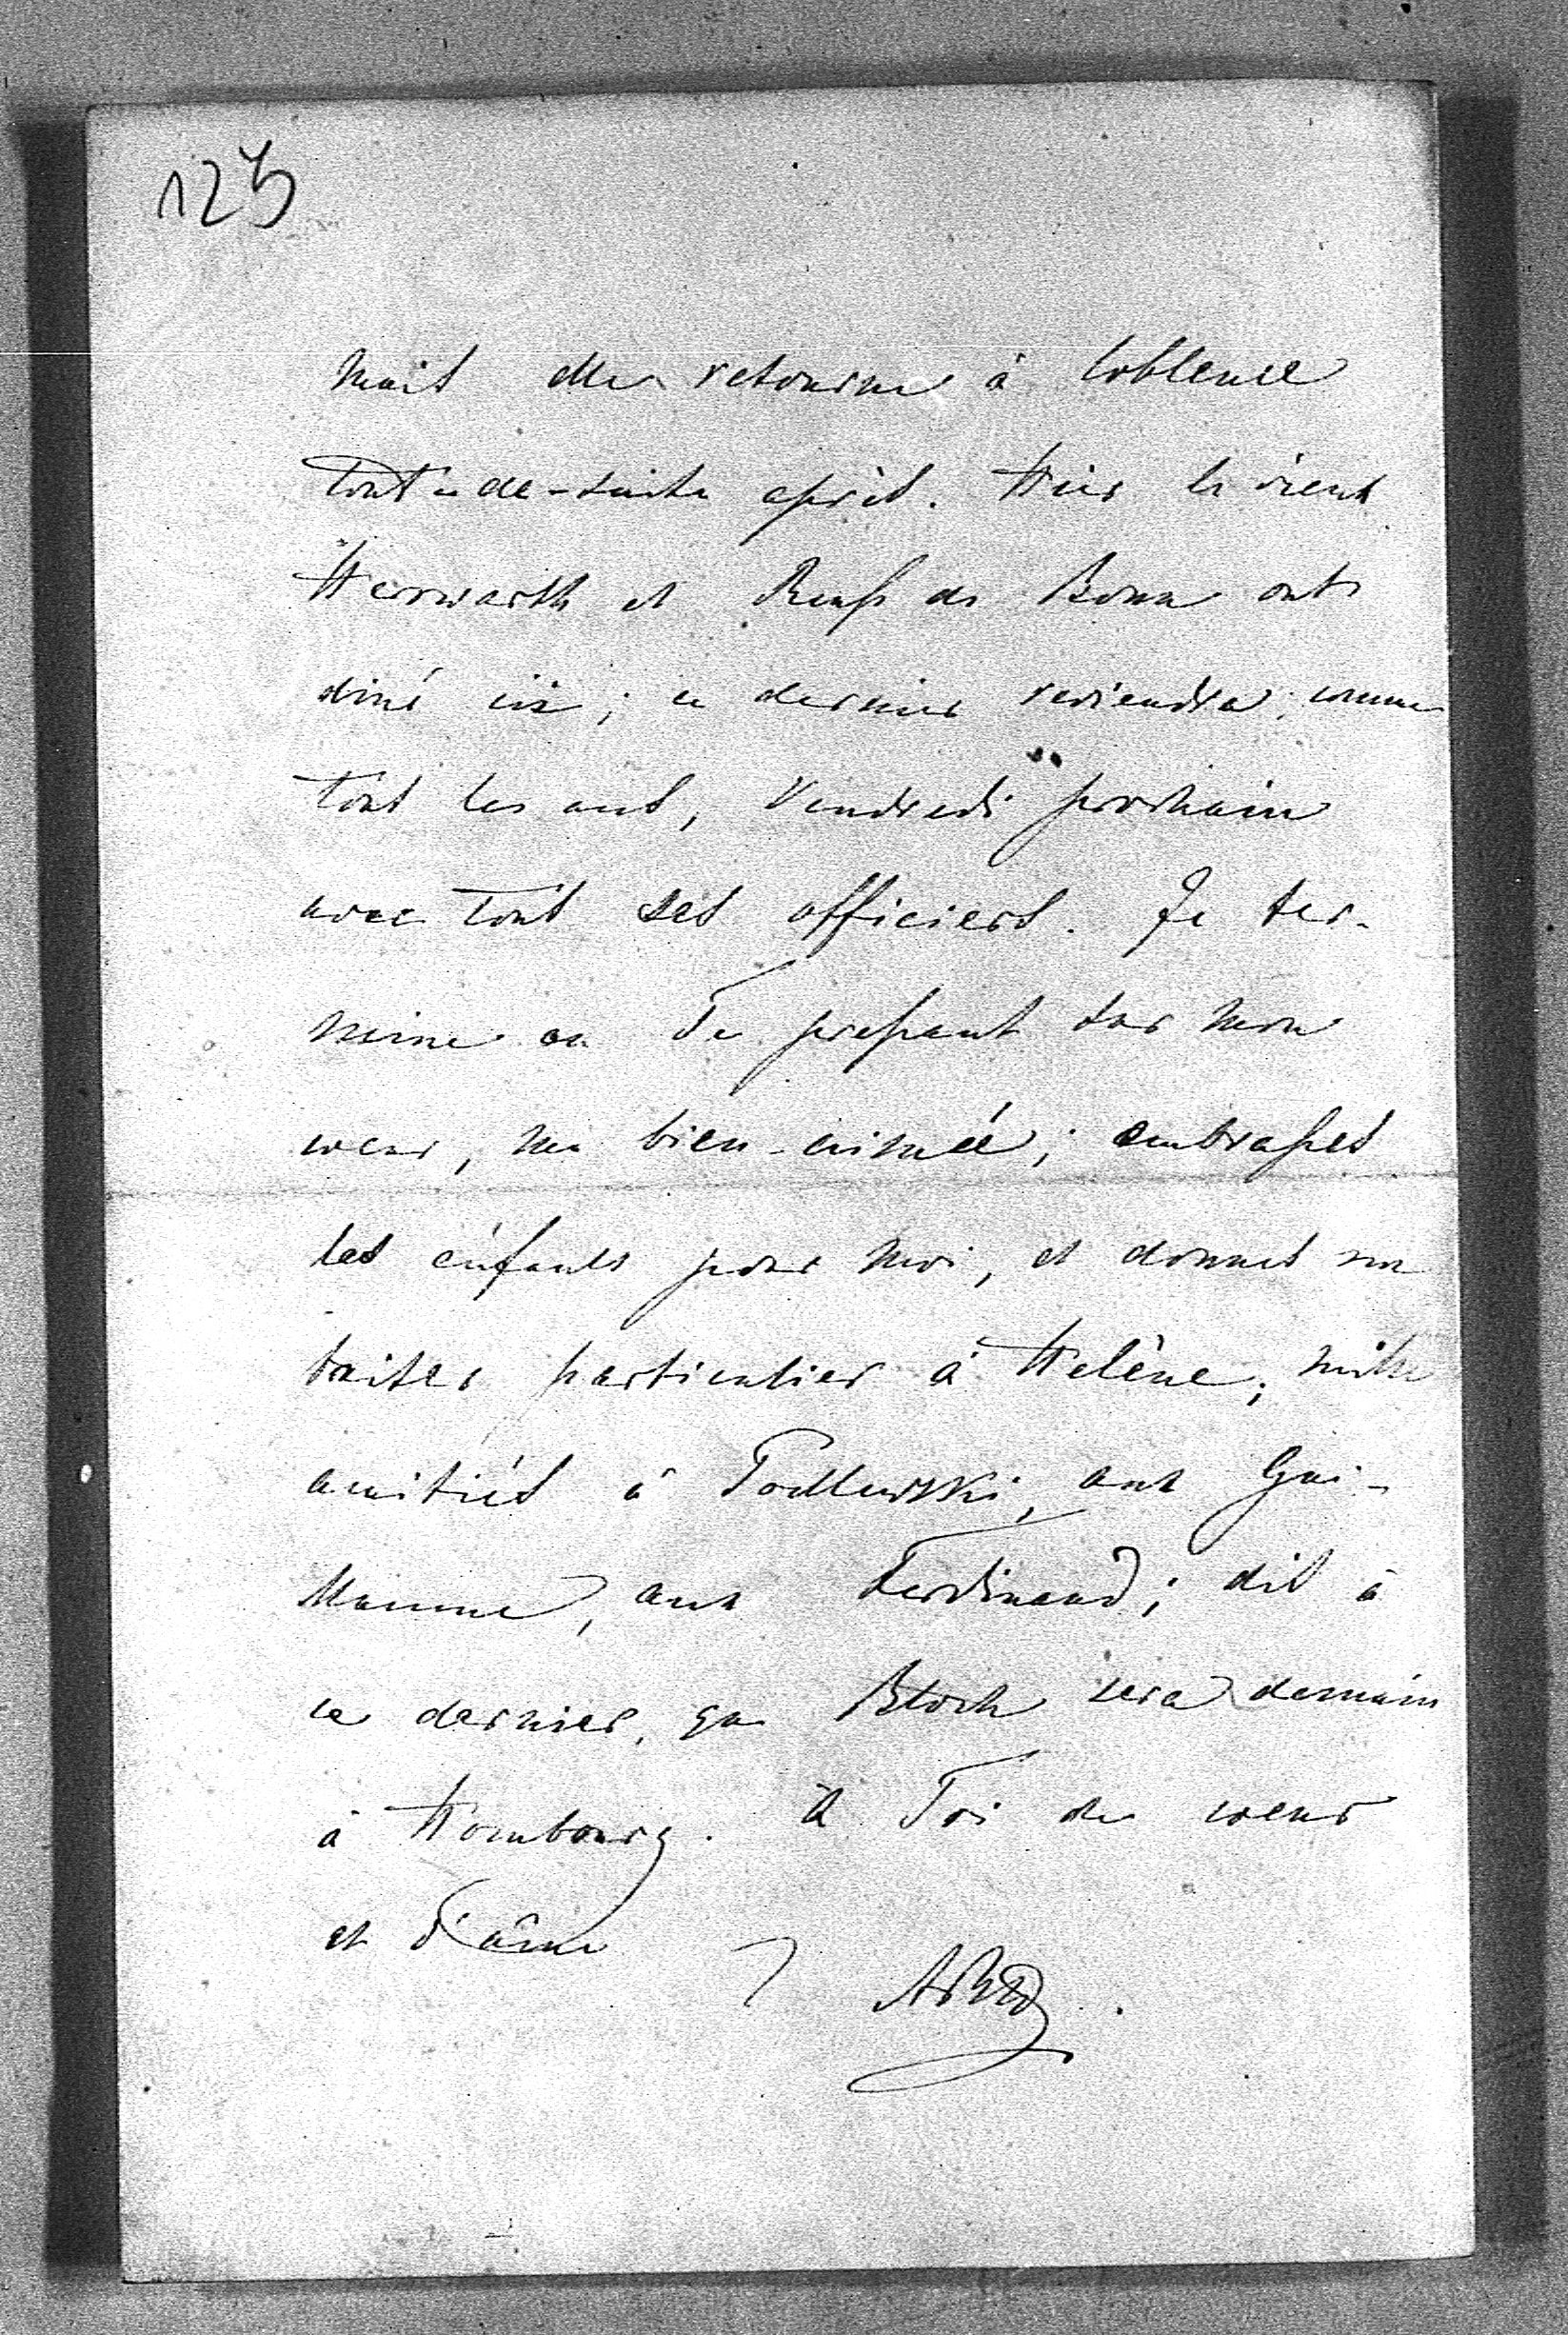 125
mais elle retourne à Coblence
tout-de-suite après. Hier le vieux
Herrwarth et Reuß de Bonn ont
diné ici; ce dernier reviendra, comme
tous les ans, Vendredi prochain
avec tous ses officiers. Je ter-
mine en Te pressant sur mon
coeur, ma bien-aimée; embrasses
les enfants pour moi, et donnes un
baiser particulier à Helène; mille
amitiés à Podlewski, aux Gui-
llaume, aux Ferdinand; dis à
ce dernier, que Bloch sera demain
à Hombourg. à Toi de coeur
et d'âme